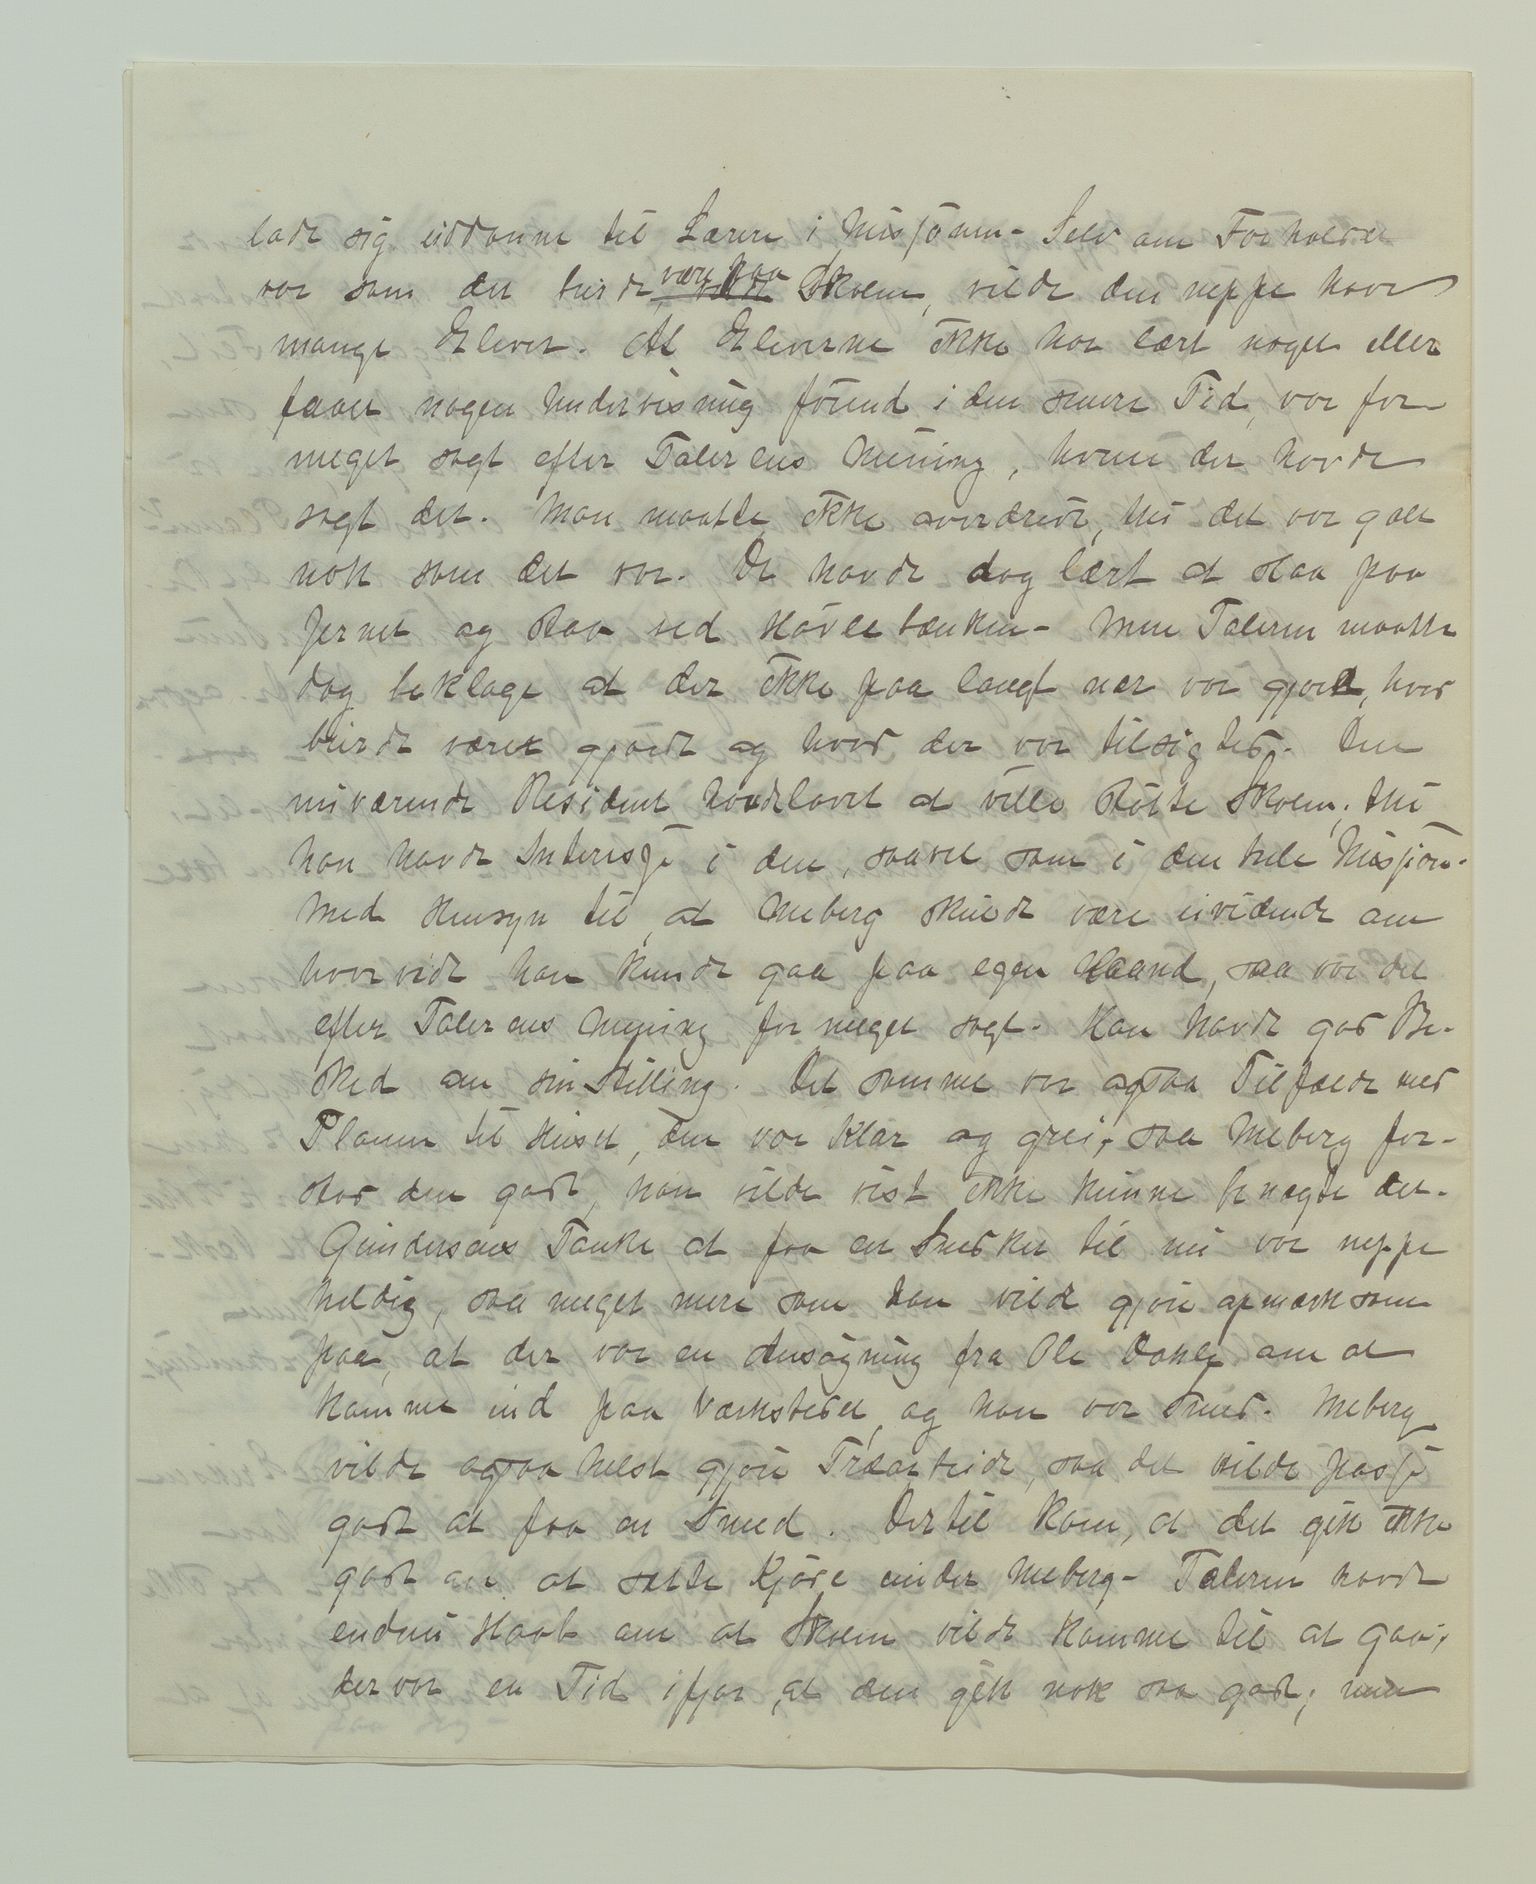 lade sig uddanne til Lærere i Missionen. Selv om Forholdet
var som det burde være paa Skolen, vilde den neppe have
mange Elever. At Eleverne ikke har lært noget eller
faaet nogen Undervisning förend i den senere Tid, var for
meget sagt efter Talerens Mening, hvem der havde
sagt det. Man maatte ikke overdrive, thi det var galt
nok som det var. De havde dog lært at slaa paa
Jernet og staa ved Hövlebænken. Men Taleren maatte
dog beklage at der ikke paa langt nær var gjort, hvad
burde været gjort og hvad der var tilsigted. Den
nuværende Resident havde lovet at ville stötte Skolen, thi
han havde Interesse i den, saavel som i den hele Mission.
Med Hensyn til, at Meberg skulde være uvidende om
hvorvidt han kunde gaa paa egen Haand, saa var det
efter Talerens Mening for meget sagt. Han havde god Be-
sked om sin Stilling. Det samme var ogsaa Tilfælde med
Planen til Huset, den var klar og grei, saa Meberg for-
stod den godt, han vilde vist ikke kunne benægte det.
Gundersens Tanke at faa en Snedker til nu var neppe
heldig, saa meget mere som han vilde gjöre opmærksom
paa, at der var en Ansögning fra Ole Dahle om at
komme ind paa Værkstedet, og han var Smed. Meberg
vilde ogsaa helst gjöre Træarbeide, saa det vilde passe
godt at faa en Smed. Dertil kom, at det gik ikke
godt an at sætte Kjöse under Meberg. Taleren havde
endnu Haab om at Skolen vilde komme til at gaa;
der var en Tid ifjor, at den gik nok saa godt; men